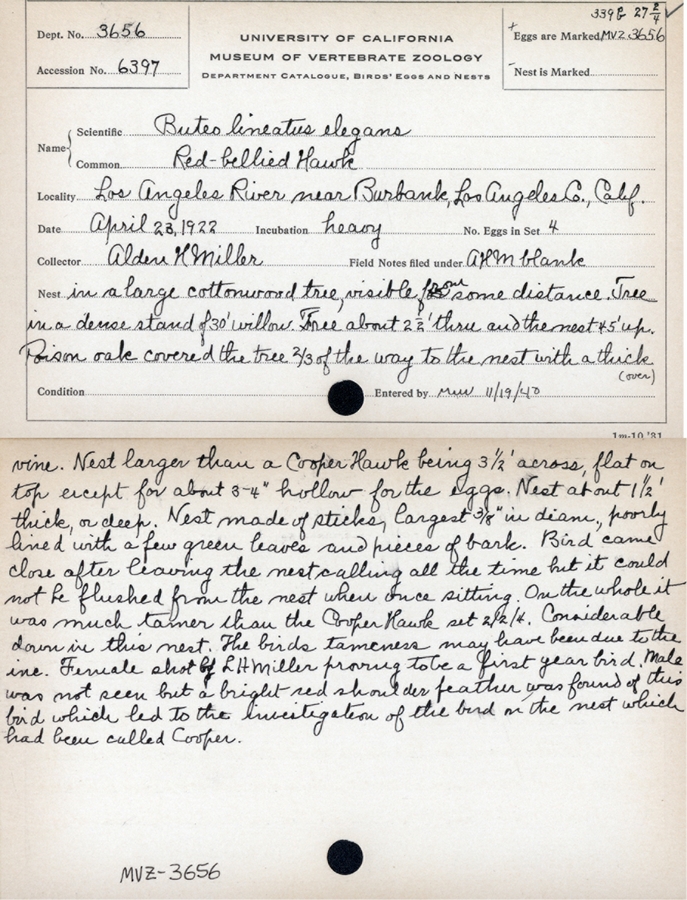 339 E 27 2/4 ✓
Dept. No. 3656
Accession No. 6397
UNIVERSITY OF CALIFORNIA
MUSEUM OF VERTEBRATE ZOOLOGY
DEPARTMENT CATALOGUE, BIRDS' EGGS AND NESTS
+ Eggs are Marked MVZ 3656
- Nest is Marked
Name { Scientific Buteo lineatus elegans
Common Red-bellied Hawk
Locality Los Angeles River near Burbank, Los Angeles Co., Calif.
Date April 23, 1922 Incubation heavy No. Eggs in Set 4
Collector Alden H Miller Field Notes filed under AHM blank
Nest in a large cottonwood tree, visible from some distance. Tree
in a dense stand of 30' willow. Tree about 2½' thru and the nest 45' up.
Poison oak covered the tree 2/3 of the way to the nest with a thick
(over)
Condition Entered by MWW 11/19/40
1m-10,'31
vine. Nest larger than a Cooper Hawk being 3½' across, flat on
top except for about 3-4" hollow for the eggs. Nest about 1½'
thick, or deep. Nest made of sticks, largest 3/8" in diam., poorly
lined with a few green leaves and pieces of bark. Bird came
close after leaving the nest calling all the time but it could
not be flushed from the nest when once sitting. On the whole it
was much tamer than the Cooper Hawk set 2/2/4. Considerable
down in this nest. The birds tameness may have been due to the
inc. Female shot by L H Miller proving to be a first year bird. Male
was not seen but a bright red shoulder feather was found of this
bird which led to the investigation of the bird on the nest which
had been called Cooper.
MVZ-3656